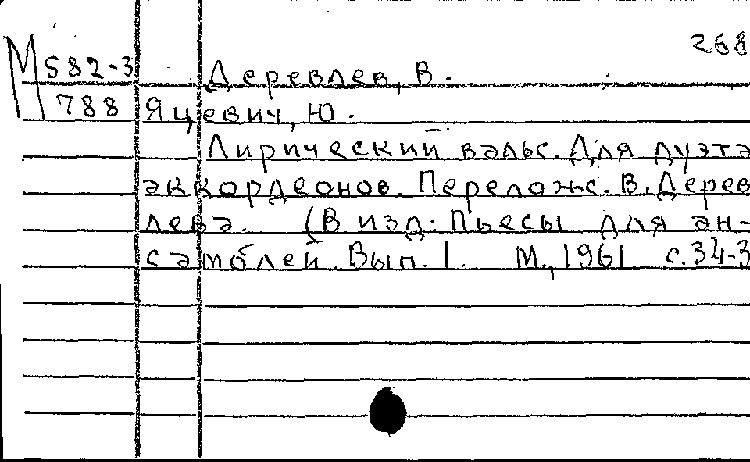 268
М 582-3 Деревлев, В.
788 Яцевич, Ю.
Лирический вальс. Для дуэта
аккордеонов. Перелож. В. Дерев
лева. (В изд: Пьесы для ан-
самблей. Вып. 1. М., 1961 с.34-3